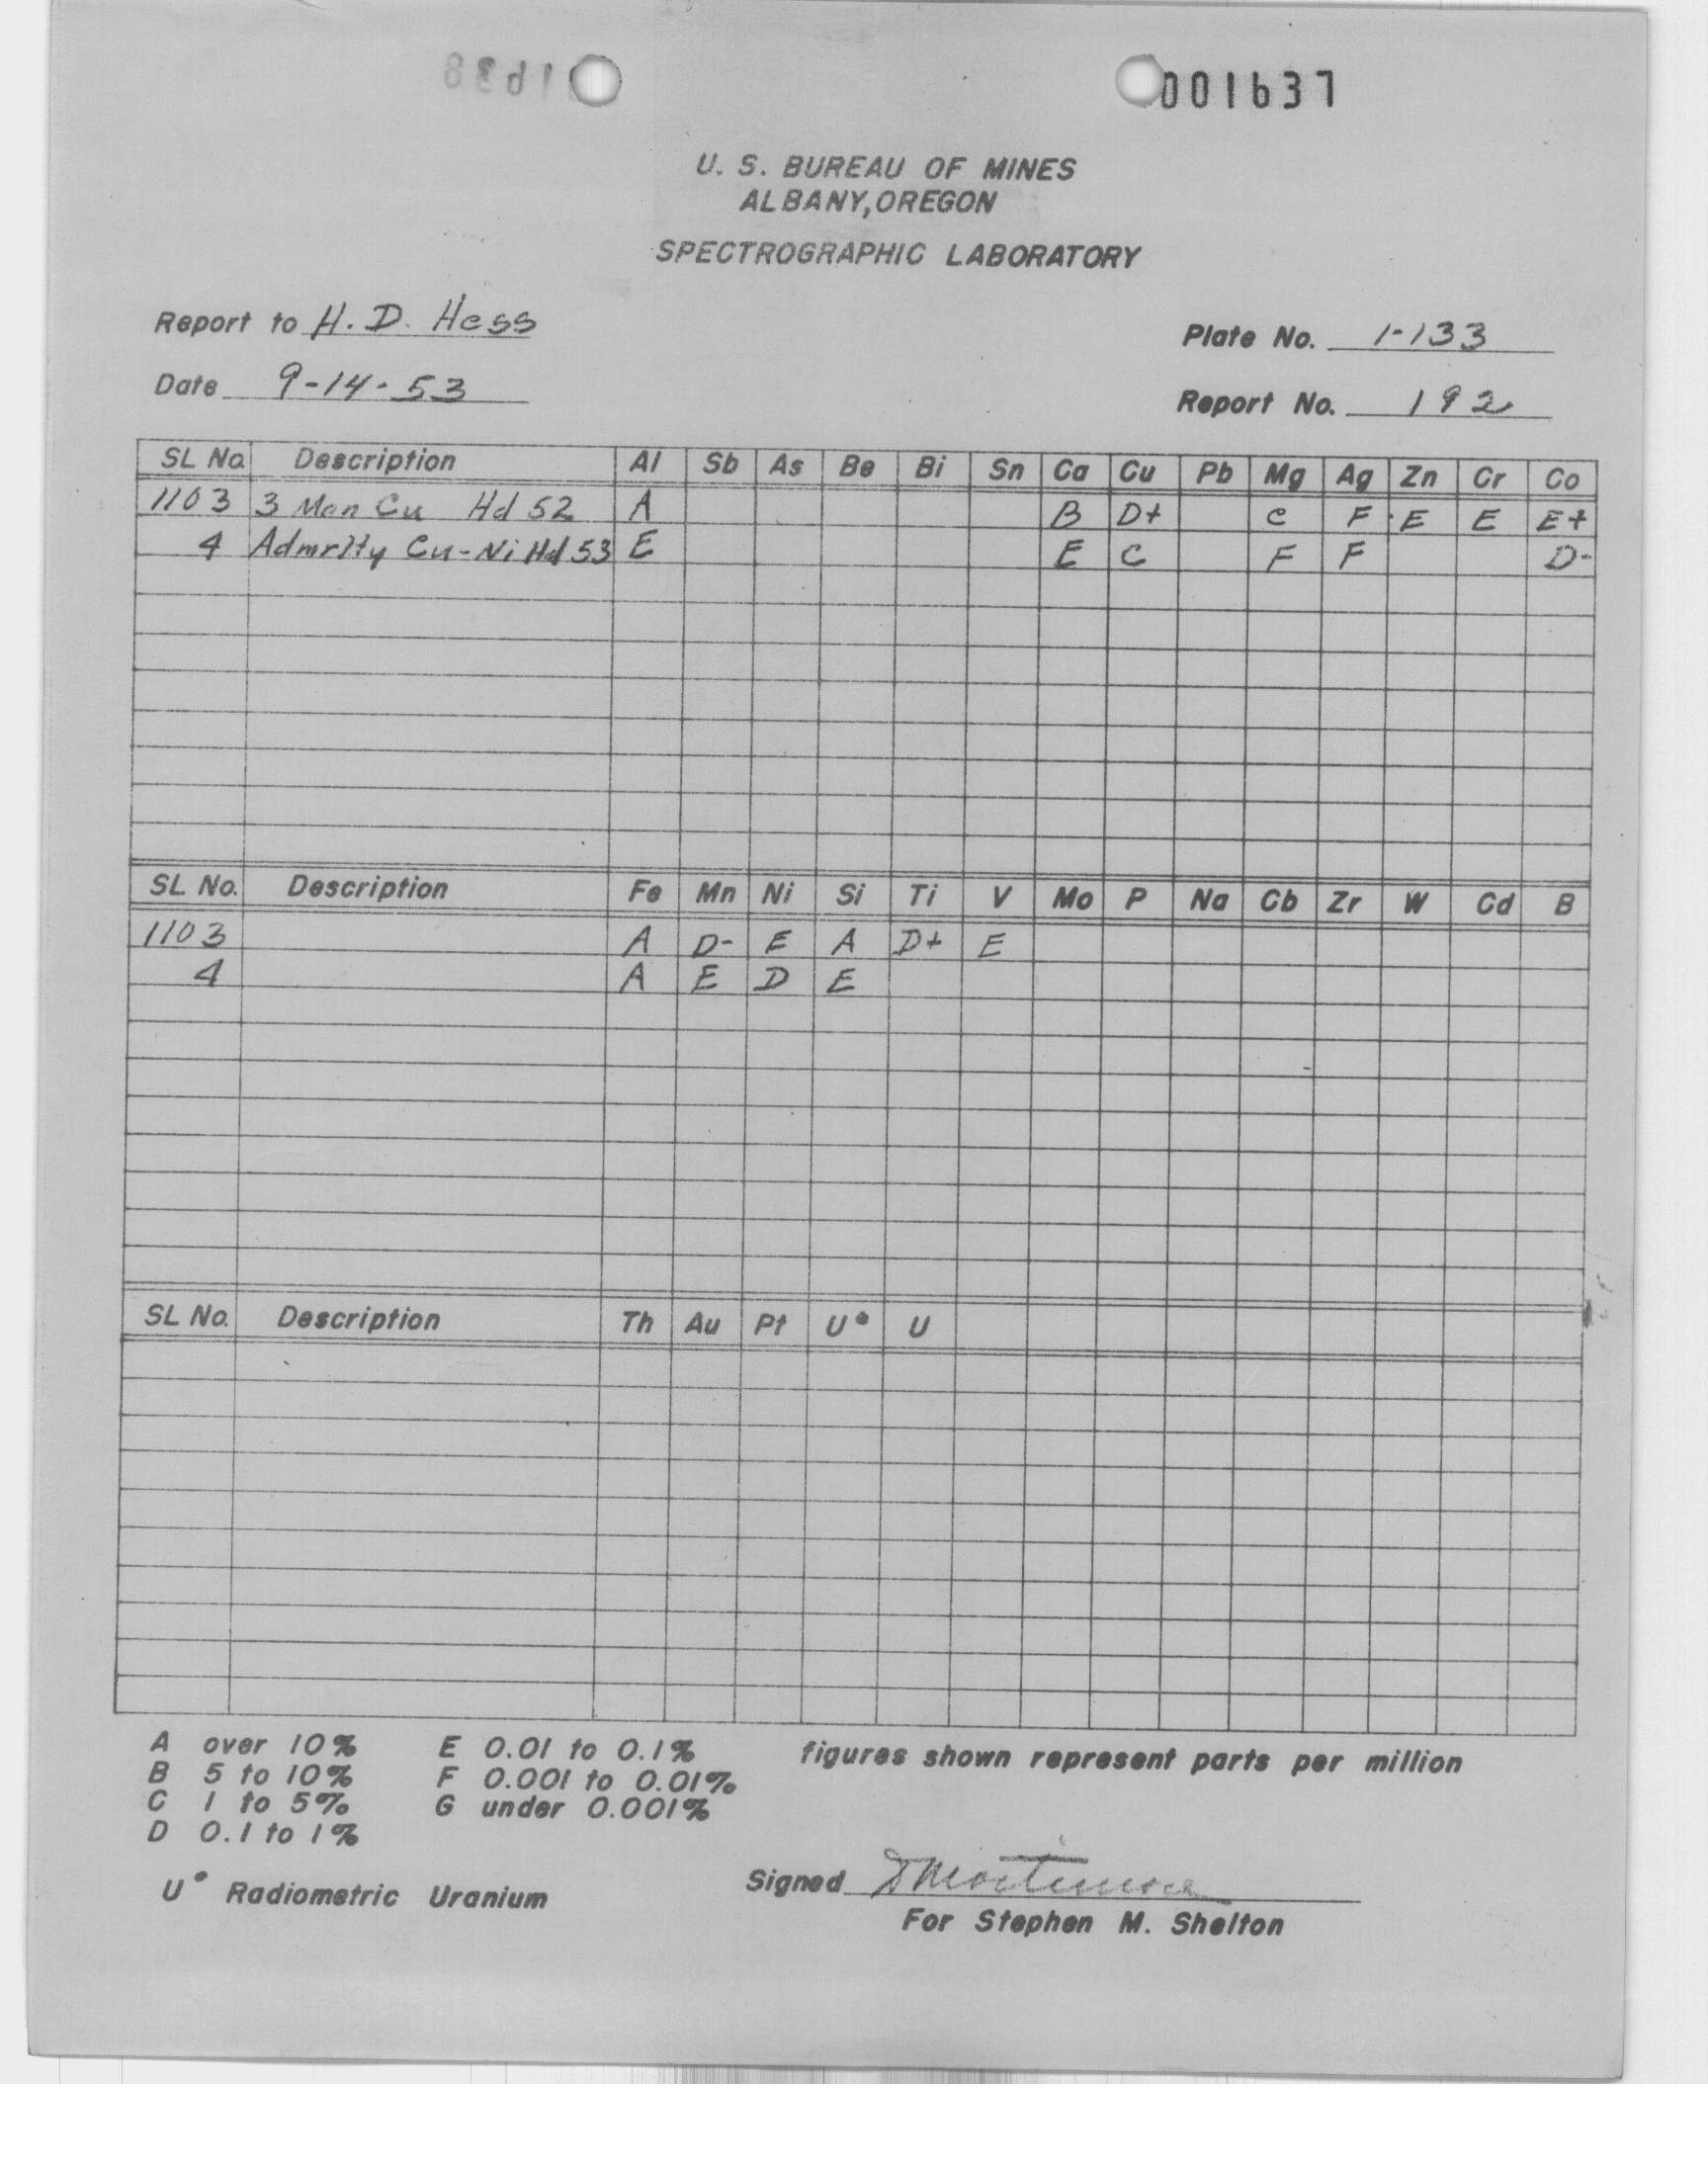 001637
U. S. BUREAU OF MINES
ALBANY, OREGON
SPECTROGRAPHIC LABORATORY
Report to H. D. Hess
Plate No. 1-133
Date 9-14-53
Report No. 192
SL No. Description Al Sb As Be Bi Sn Ca Cu Pb Mg Ag Zn Cr Co
1103 3 Man Cu Hd 52 A B D+ C F E E E+
4 Admrlty Cu-Ni Hd 53 E E C F F D-
SL No. Description Fe Mn Ni Si Ti V Mo P Na Cb Zr W Cd B
1103 A D- E A D+ E
4 A E D E
SL No. Description Th Au Pt U* U
A over 10% E 0.01 to 0.1% figures shown represent parts per million
B 5 to 10% F 0.001 to 0.01%
C 1 to 5% G under 0.001%
D 0.1 to 1%
U* Radiometric Uranium
Signed Mortimore
For Stephen M. Shelton